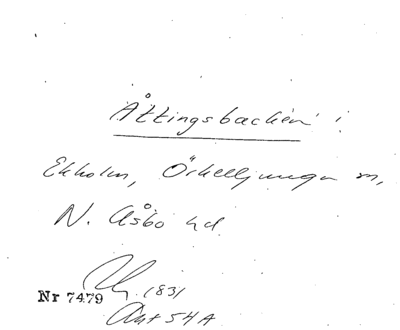 Åttingsbacken i
Ekholm, Örkelljunga m,
N. Åsbo hd.
1831
Nr 7479
Akt 54A